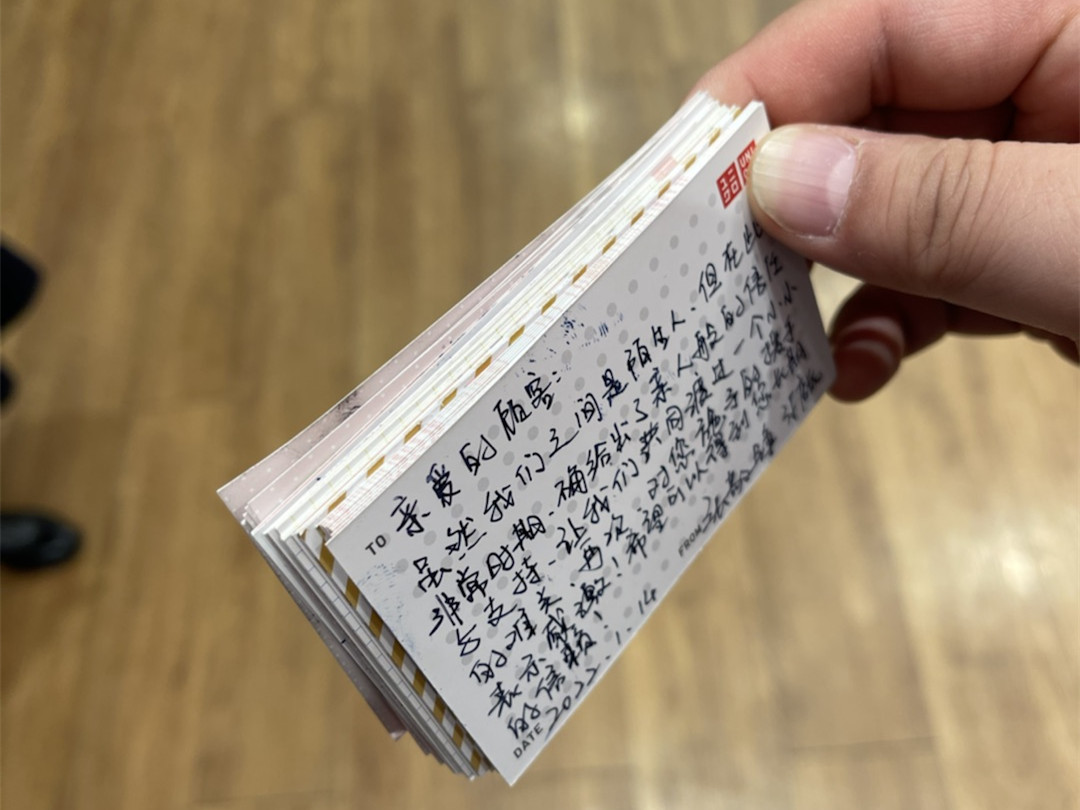 UNI
TO 亲爱的顾客:
虽然我们之间是陌生人、但在此
非常时期、确给出了亲人般的信任
与支持、让我们共同渡过一个小小
的难关、再次对您携手的
表示感谢!希望可以得到您长期
的信赖!
FROM
DATE 2022.1.14